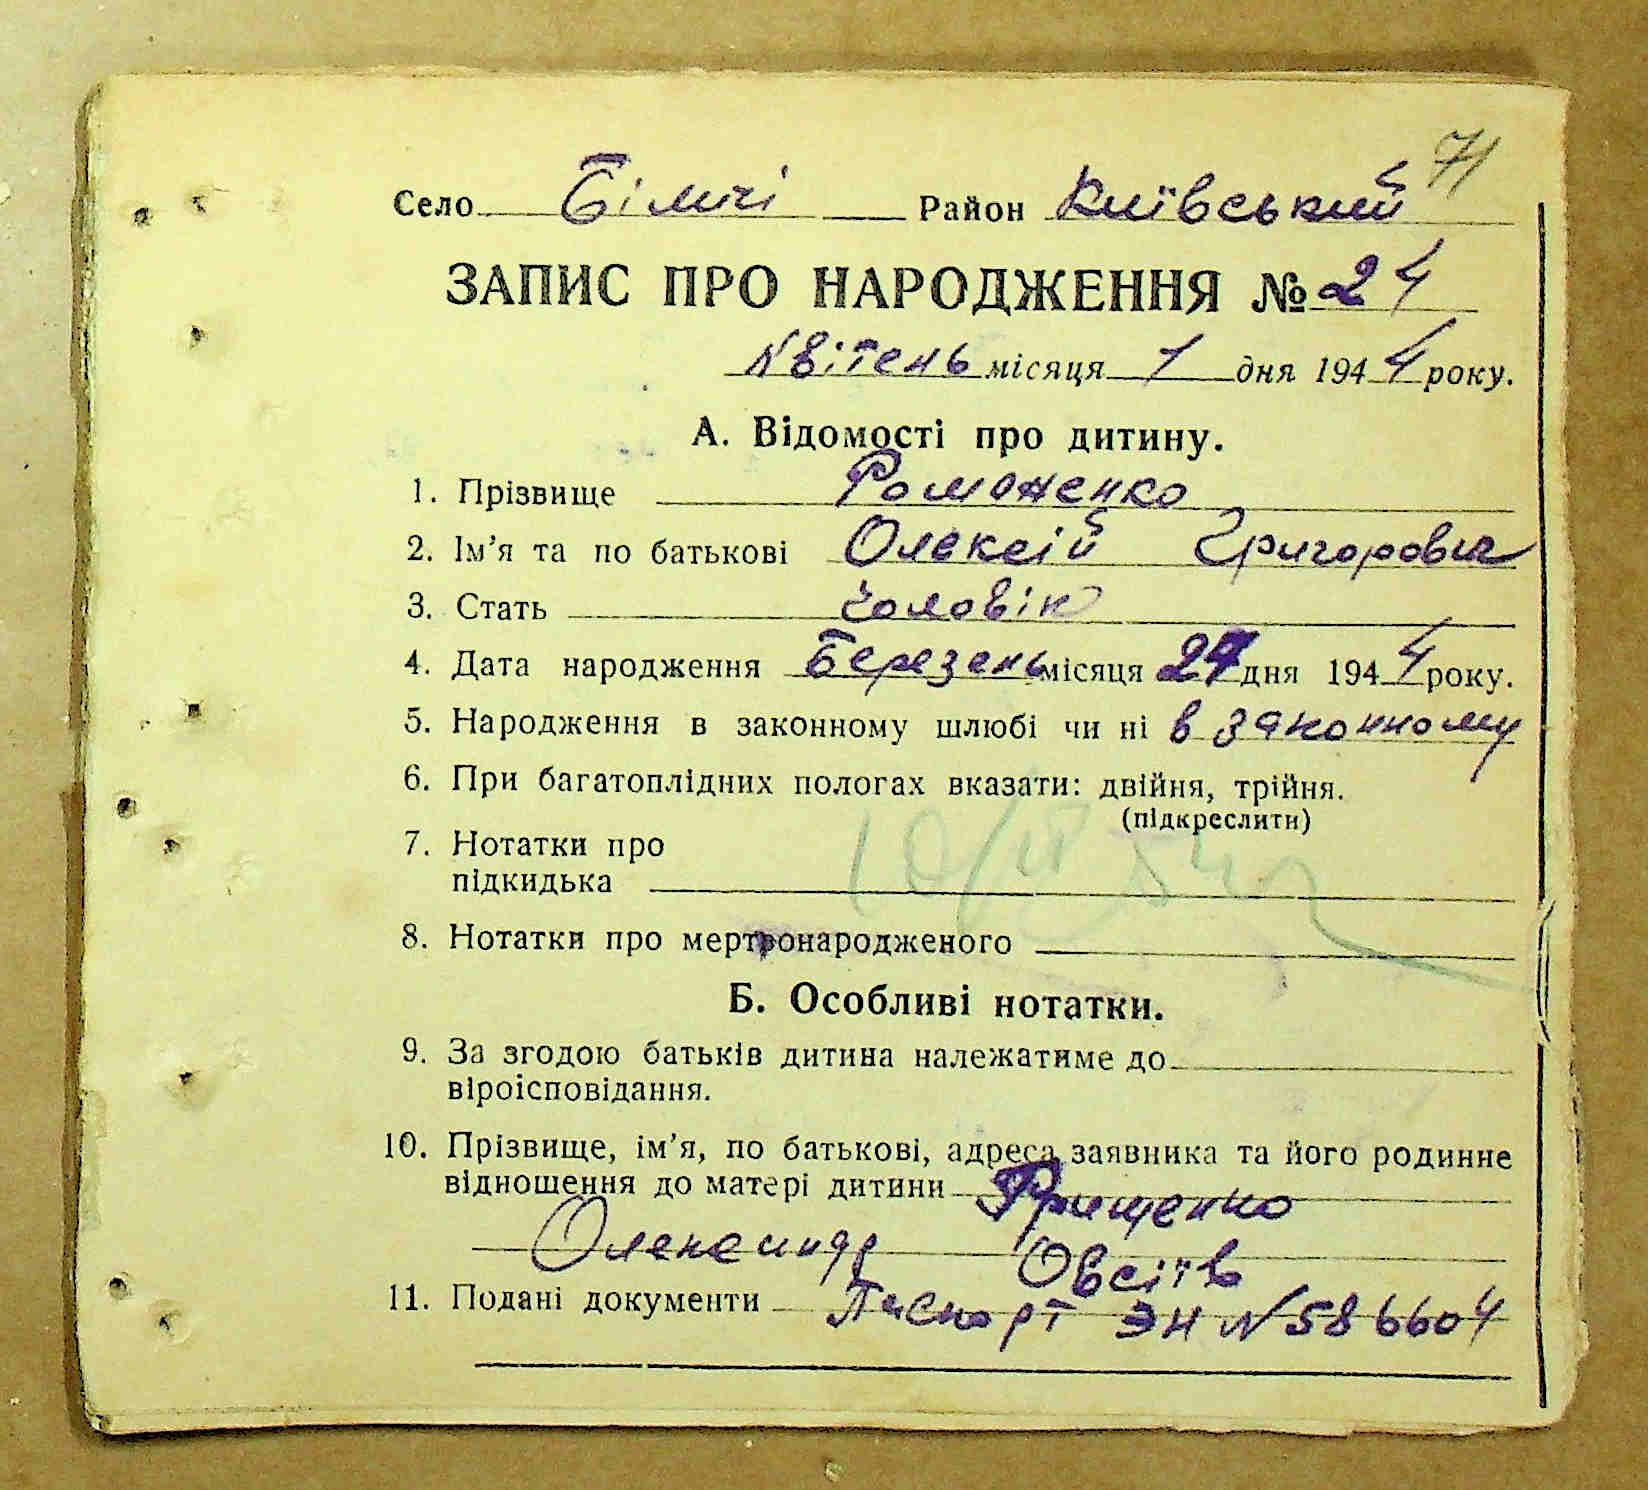 71
Село Біличі Район Київський
ЗАПИС ПРО НАРОДЖЕННЯ № 24
Квітень місяця 1 дня 1944 року.
А. Відомості про дитину.
1. Прізвище Романенко
2. Ім'я та по батькові Олексій Григорович
3. Стать чоловік
4. Дата народження Березень місяця 27 дня 1944 року.
5. Народження в законному шлюбі чи ні в законному
6. При багатоплідних пологах вказати: двійня, трійня.
(підкреслити)
7. Нотатки про
підкидька
8. Нотатки про мертвонародженого
Б. Особливі нотатки.
9. За згодою батьків дитина належатиме до
віроісповідання.
10. Прізвище, ім'я, по батькові, адреса заявника та його родинне
відношення до матері дитини Грищенко
Олександр Овсіїв
11. Подані документи Паспорт ЭН N 586604